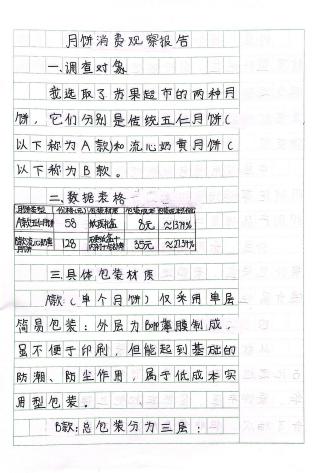 月饼消费观察报告
一、调查对象
我选取了苏果超市的两种月
饼，它们分别是传统五仁月饼（
以下称为A款）和流心奶黄月饼（
以下称为B款）。
二、数据表格
月饼类型 价格(元) 包装材质 包装成本 包装成本占比
A款五仁月饼 58 纸质礼盒 8元 ≈13.79%
B款流心奶黄月饼 128 35元 ≈27.34%
三、具体包装材质
A款（单个月饼）仅采用单层
简易包装：外层为BOPP薄膜制成，
虽不便于印刷，但能起到基础的
防潮、防尘作用，属于低成本实
用型包装。
B款：总包装分为三层：